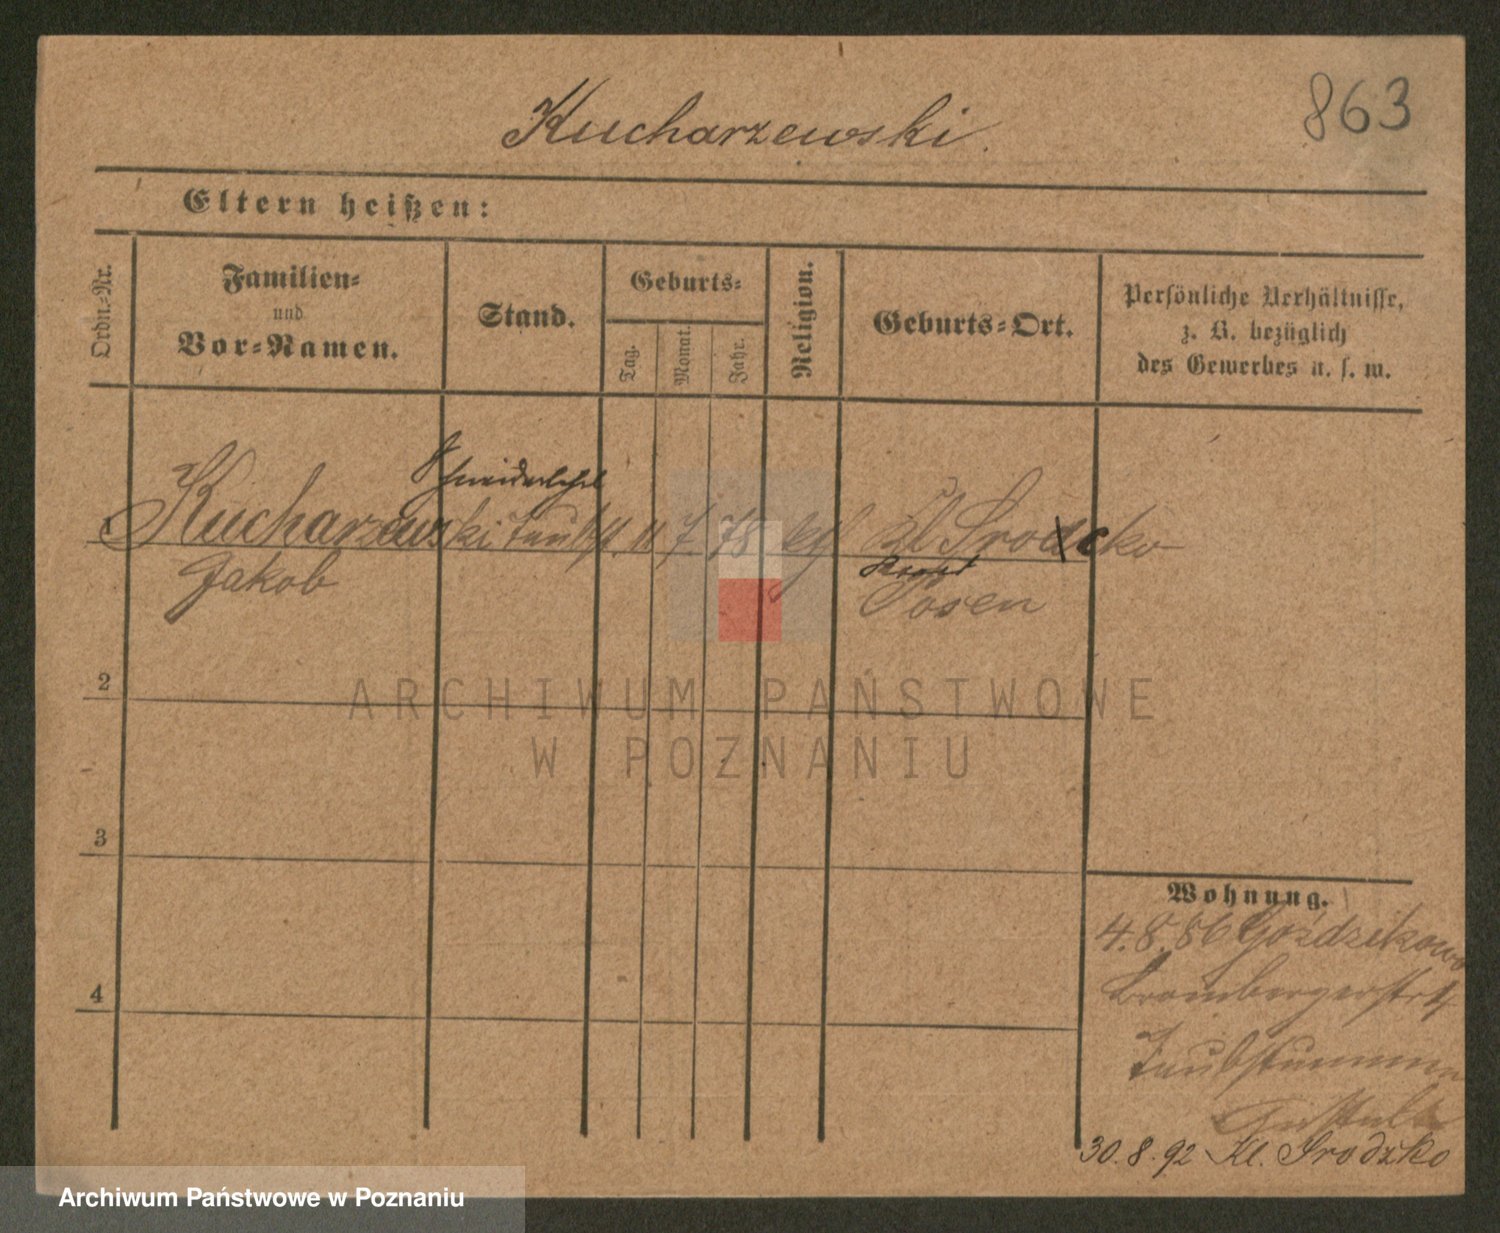 Kucharzewski.
863
Eltern heißen:
Ordn.-Nr.
Familien-
und
Vor-Namen.
Stand.
Geburts-
Tag.
Monat.
Jahr.
Religion.
Geburts-Ort.
Persönliche Verhältnisse,
z. B. bezüglich
des Gewerbes u. s. w.
1 Kucharzewski 11 7 75 kath
Jakob
Posen
2
3
4
Wohnung.
4.8.86 Goździkowo
Brombergerstr
Taubstummen
Anstalt
30.8.92 Kl. Srodzko
ARCHIWUM PAŃSTWOWE
W POZNANIU
Archiwum Państwowe w Poznaniu